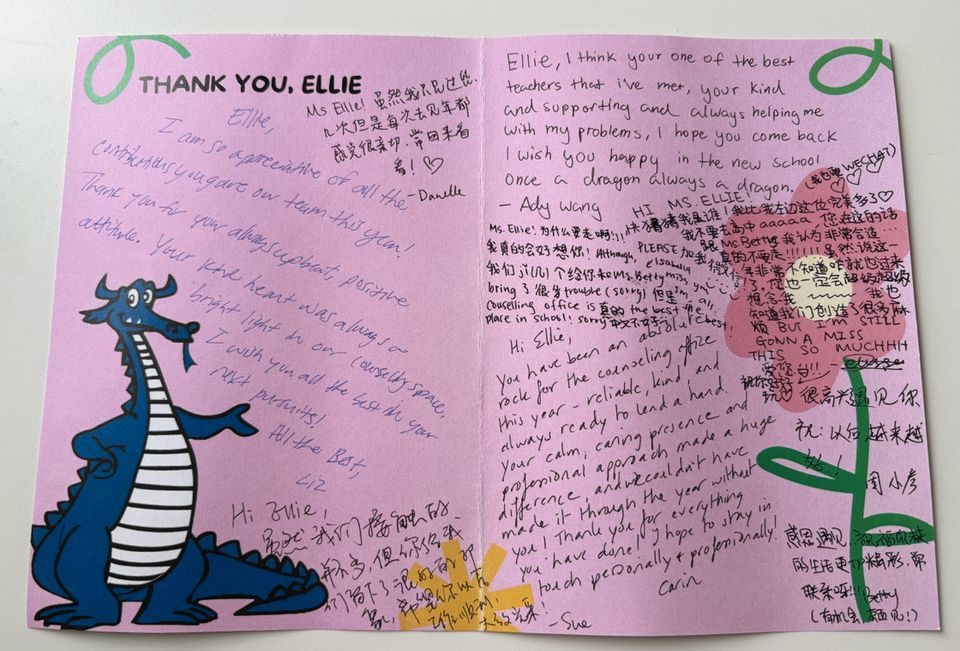 THANK YOU, ELLIE
Ms Ellie! 虽然我只见过您
几次但是每次去见年都
感觉很亲切. 常回来看
看! ♡
- Danelle
Ellie,
I am so appreciative of all the
contributions you gave our team this year!
Thank you for your always upbeat, positive
attitude. Your kind heart was always a
bright light in our counseling space.
I wish you all the best in your
next pursuits!
All the Best,
Liz
Hi Ellie!
虽然我们接触的
并不多,但你给我
们留下了很好的印
象,希望你以后
工作顺利,
- Sue
Ellie, I think your one of the best
teachers that i've met, your kind
and supporting and always helping me
with my problems, I hope you come back
I wish you happy in the new school
once a dragon always a dragon.
- Ady Wang
(我也要 WECHAT)
♡ ♡ ♡
HI MS. ELLIE!
快猜猜我是谁! 我比我左边这位完美多了♡
我不要去高中aaaaa 您在这的话
跟Ms.Betty 我认为非常合适...
真的不要走!!!! 虽然说这一
年非常不知道咋就也过来
了. 您也一定会超级超级
想念我 我也
知道我们创造了很多麻
烦 BUT I'M STILL
GONNA MISS
THIS SO MUCHHH
爱您!!
祝您
玩♡
Ms. Ellie! 为什么要走啊!!!
我真的会好想你! Although,
PLEASE 加我微
我们几(几)个给你和Ms. Betty
bring了很多trouble (sorry) 但是 in all,
couselling office is 真的 the best
place in school! sorry 中文不好 best!
Hi Ellie,
You have been an absolute
rock for the counseling office
this year - reliable, kind and
always ready to lend a hand.
Your calm, caring presence and
professional approach made a huge
difference, and we couldn't have
made it through the year without
you! Thank you for everything
you have done! I hope to stay in
touch personally + professionally!
Carin
很高兴遇见你
祝:以后越来越
好!
周小彦
感恩遇见,
的生活更加精彩.常
联系呀!!! Betty
(有机会,再见!)